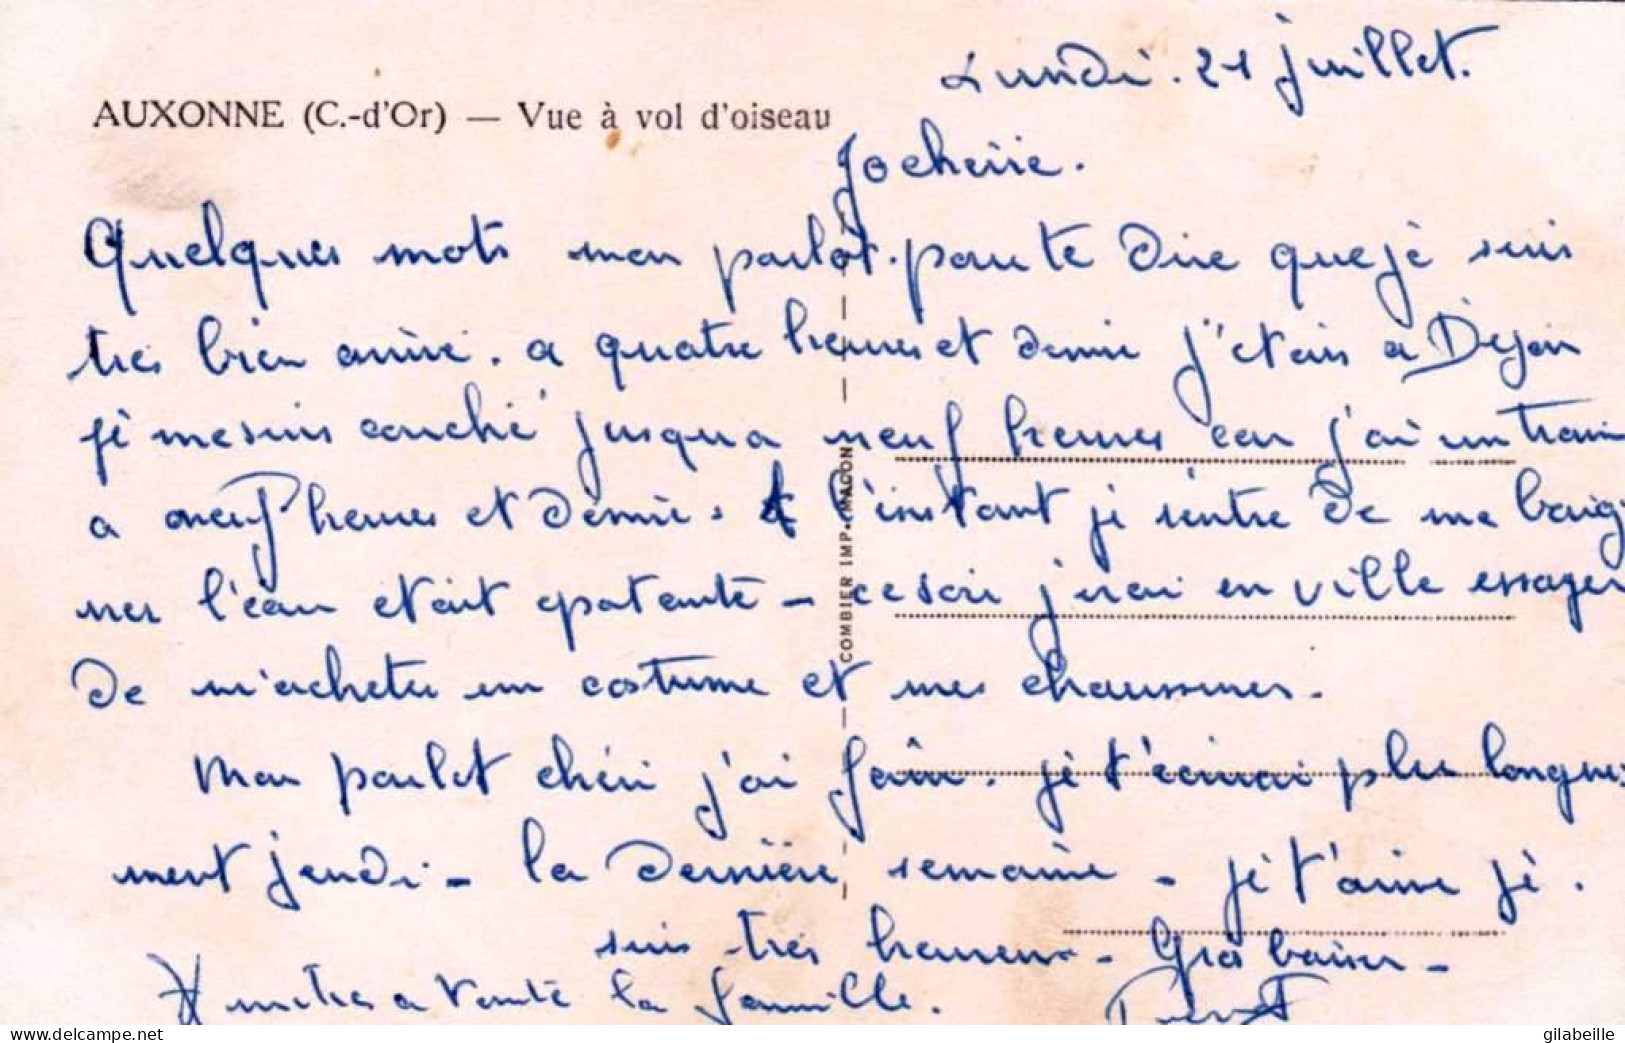 Lundi. 21 juillet.
AUXONNE (C.-d'Or) — Vue à vol d'oiseau
Jo cherie.
Quelques mots mon poulot. pour te dire que je suis
tres bien arrivé. a quatre heures et demi j'etais a Dijon
je me suis couché jusqu a neuf heures car j'ai un train
a neuf heures et demie. A l'instant je rentre de me baig-
ner l'eau etait epatante – ce soir j'irai en ville essayer
de m'acheter un costume et mes chaussures.
Mon poulot chéri j'ai faim. je t'écrirai plus longue-
ment jeudi – la dernière semaine – je t'aime je.
suis très heureux – Gros baiser –
mitres a toute la famille.
COMBIER IMP. MACON
www.delcampe.net
gilabeille